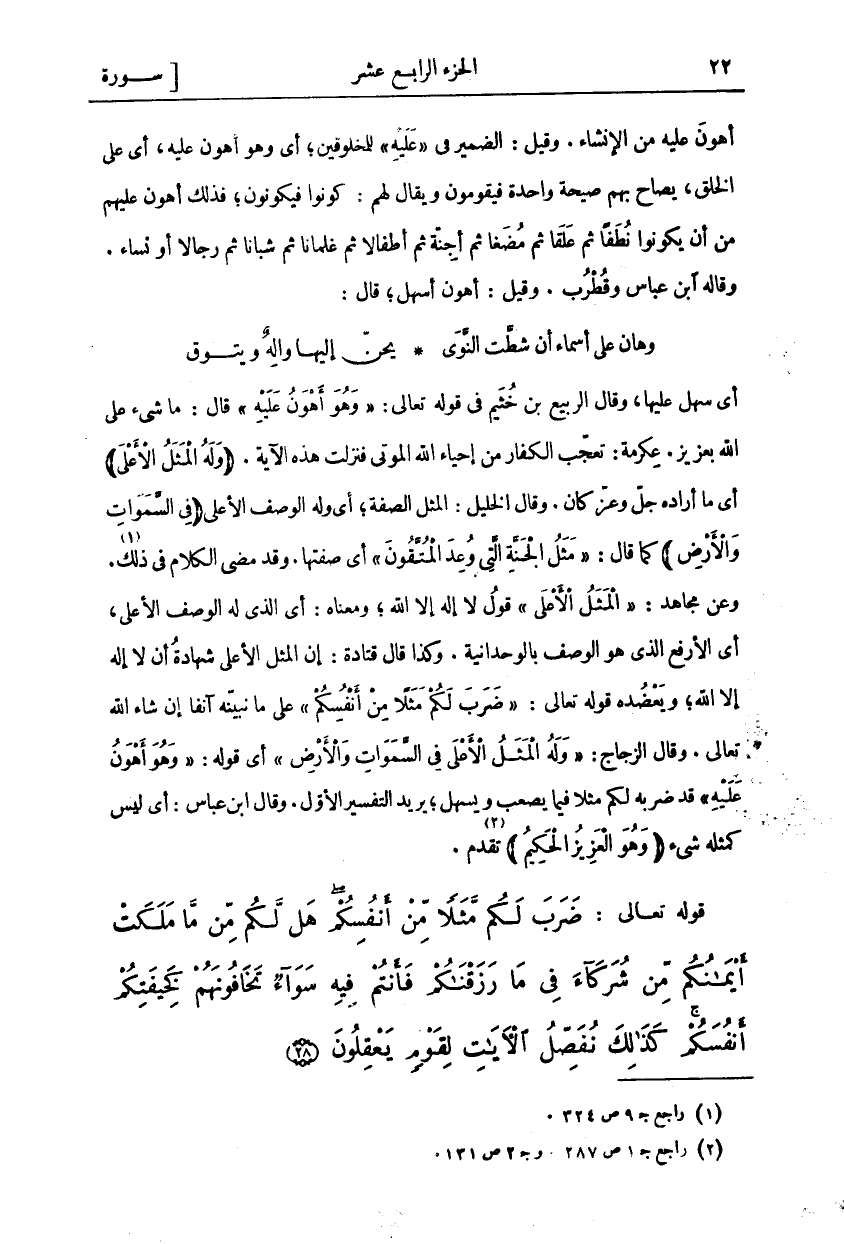 ٢٢ الجزء الرابع عشر [ سورة
أهونَ عليه من الإنشاء . وقيل : الضمير فى «عَلَيْهِ» للمخلوقين؛ أى وهو أهون عليه، أى على
الخلق، يصاح بهم صيحة واحدة فيقومون ويقال لهم : كونوا فيكونون؛ فذلك أهون عليهم
من أن يكونوا نُطَفًا ثم عَلَقا ثم مُضَغا ثم أجِنّة ثم أطفالا ثم غلمانا ثم شبانا ثم رجالا أو نساء .
وقاله آبن عباس وقُطْرُب . وقيل : أهون أسهل؛ قال :
وهان على أسماء أن شطَّت النَّوَى * يحنّ إليها والِهٌ ويتوق
أى سهل عليها، وقال الربيع بن خُثَيم فى قوله تعالى: « وَهُوَ أَهْوَنُ عَلَيْهِ » قال : ما شىء على
الله بعزيز . عِكرمة: تعجّب الكفار من إحياء الله الموتى فنزلت هذه الآية . ﴿وَلَهُ الْمَثَلُ الْأَعْلَى﴾
أى ما أراده جلّ وعزّ كان . وقال الخليل : المثل الصفة؛ أى وله الوصف الأعلى ﴿فِى السَّمَوَاتِ
وَالْأَرْضِ﴾ كما قال : « مَثَلُ الْجَنَّةِ الَّتِى وُعِدَ الْمُتَّقُونَ » أى صفتها . وقد مضى الكلام فى ذلك(١).
وعن مجاهد : « الْمَثَلُ الْأَعْلَى » قولُ لا إله إلا الله ؛ ومعناه : أى الذى له الوصف الأعلى،
أى الأرفع الذى هو الوصف بالوحدانية . وكذا قال قتادة : إن المثل الأعلى شهادةُ أن لا إله
إلا الله؛ ويَعْضُده قوله تعالى : « ضَرَبَ لَكُمْ مَثَلًا مِنْ أَنْفُسِكُمْ » على ما نبيّنه آنفا إن شاء الله
تعالى . وقال الزجاج: « وَلَهُ الْمَثَلُ الْأَعْلَى فِى السَّمَوَاتِ وَالْأَرْضِ » أى قوله : « وَهُوَ أَهْوَنُ
عَلَيْهِ» قد ضربه لكم مثلا فيما يصعب ويسهل؛ يريد التفسير الأوّل . وقال ابن عباس : أى ليس
كمثله شىء ﴿وَهُوَ الْعَزِيزُ الْحَكِيمُ﴾ تقدم(٢) .
قوله تعالى : ضَرَبَ لَكُم مَّثَلًا مِّنْ أَنفُسِكُمْۖ هَل لَّكُم مِّن مَّا مَلَكَتْ
أَيْمَـٰنُكُم مِّن شُرَكَآءَ فِى مَا رَزَقْنَـٰكُمْ فَأَنتُمْ فِيهِ سَوَآءٌ تَخَافُونَهُمْ كَخِيفَتِكُمْ
أَنفُسَكُمْۚ كَذَٰلِكَ نُفَصِّلُ ٱلْآيَـٰتِ لِقَوْمٍ يَعْقِلُونَ ﴿٢٨﴾
(١) راجع جـ ٩ ص ٣٢٤ .
(٢) راجع جـ ١ ص ٢٨٧ . وجـ ٢ ص ١٣١ .